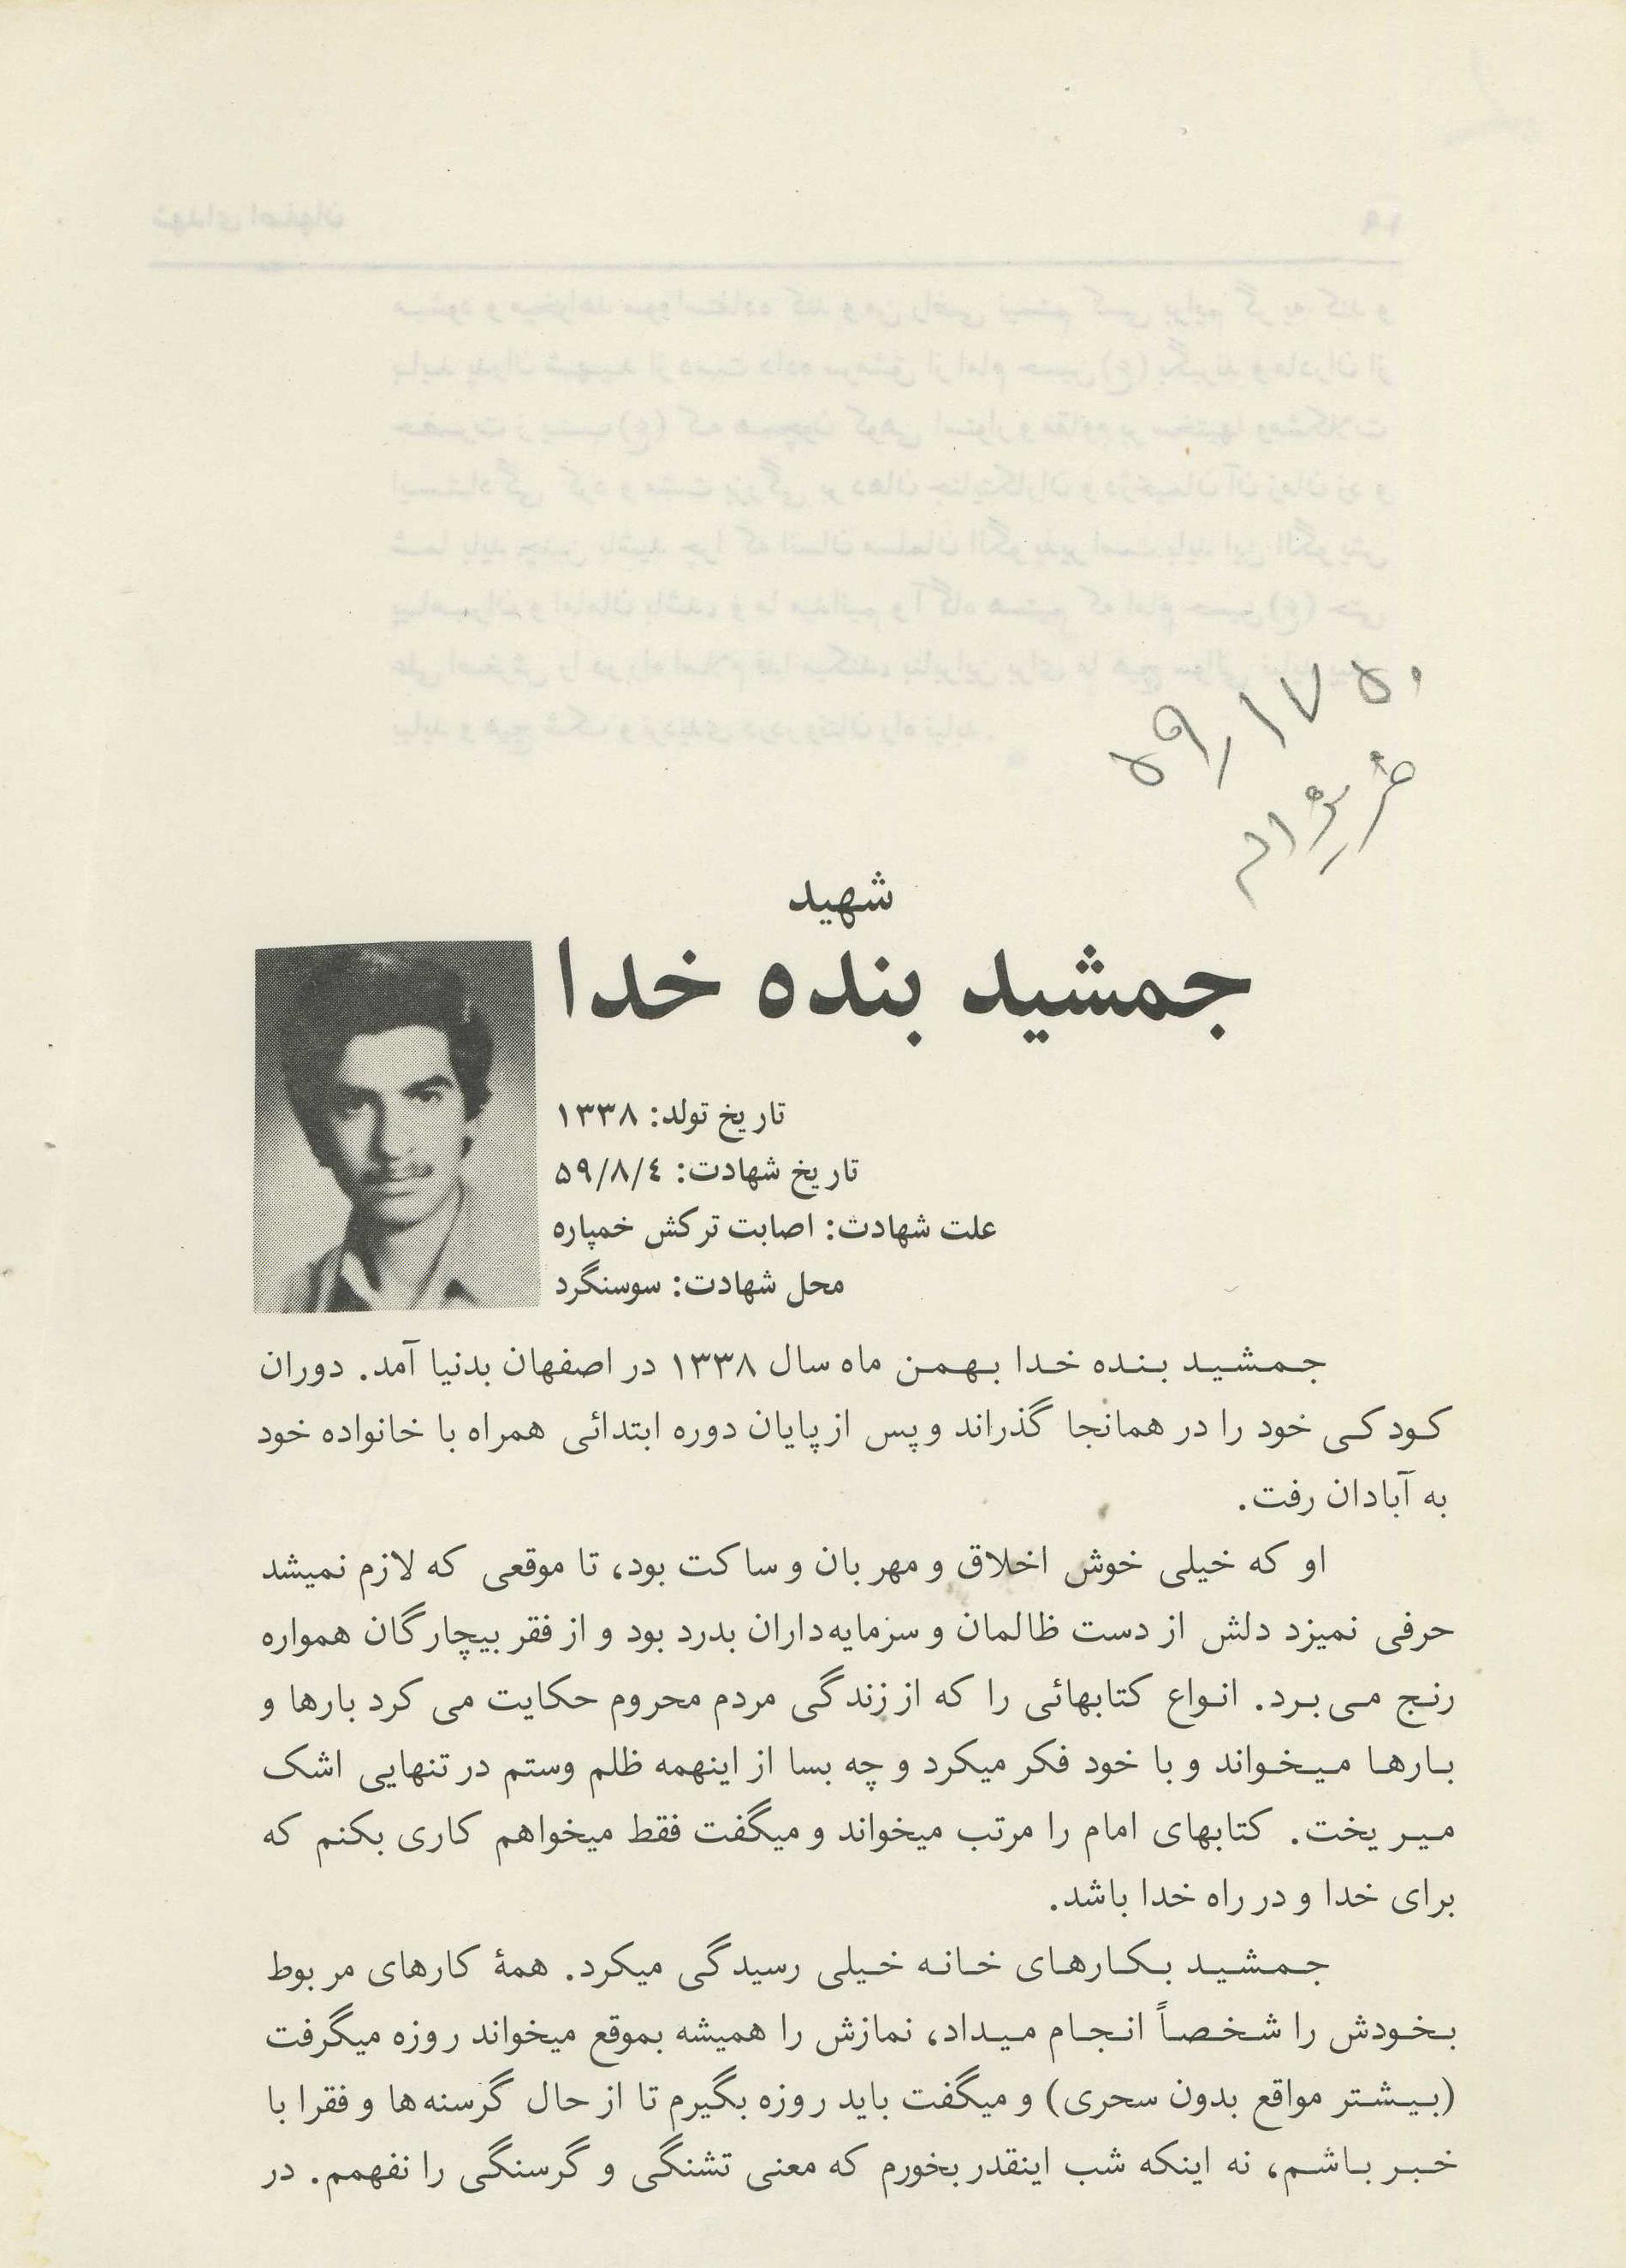 ۵۹٫۱۷۵۰
شهید
جمشید بنده خدا
تاریخ تولد: ۱۳۳۸
تاریخ شهادت: ۵۹/۸/٤
علت شهادت: اصابت ترکش خمپاره
محل شهادت: سوسنگرد
جمشید بنده خدا بهمن ماه سال ۱۳۳۸ در اصفهان بدنیا آمد. دوران
کودکی خود را در همانجا گذراند و پس از پایان دوره ابتدائی همراه با خانواده خود
به آبادان رفت.
او که خیلی خوش اخلاق و مهربان و ساکت بود، تا موقعی که لازم نمیشد
حرفی نمیزد دلش از دست ظالمان و سرمایه‌داران بدرد بود و از فقر بیچارگان همواره
رنج می‌برد. انواع کتابهائی را که از زندگی مردم محروم حکایت می کرد بارها و
بارها میخواند و با خود فکر میکرد و چه بسا از اینهمه ظلم وستم در تنهایی اشک
میریخت. کتابهای امام را مرتب میخواند و میگفت فقط میخواهم کاری بکنم که
برای خدا و در راه خدا باشد.
جمشید بکارهای خانه خیلی رسیدگی میکرد. همهٔ کارهای مربوط
بخودش را شخصاً انجام میداد، نمازش را همیشه بموقع میخواند روزه میگرفت
(بیشتر مواقع بدون سحری) و میگفت باید روزه بگیرم تا از حال گرسنه‌ها و فقرا با
خبر باشم، نه اینکه شب اینقدر بخورم که معنی تشنگی و گرسنگی را نفهمم. در